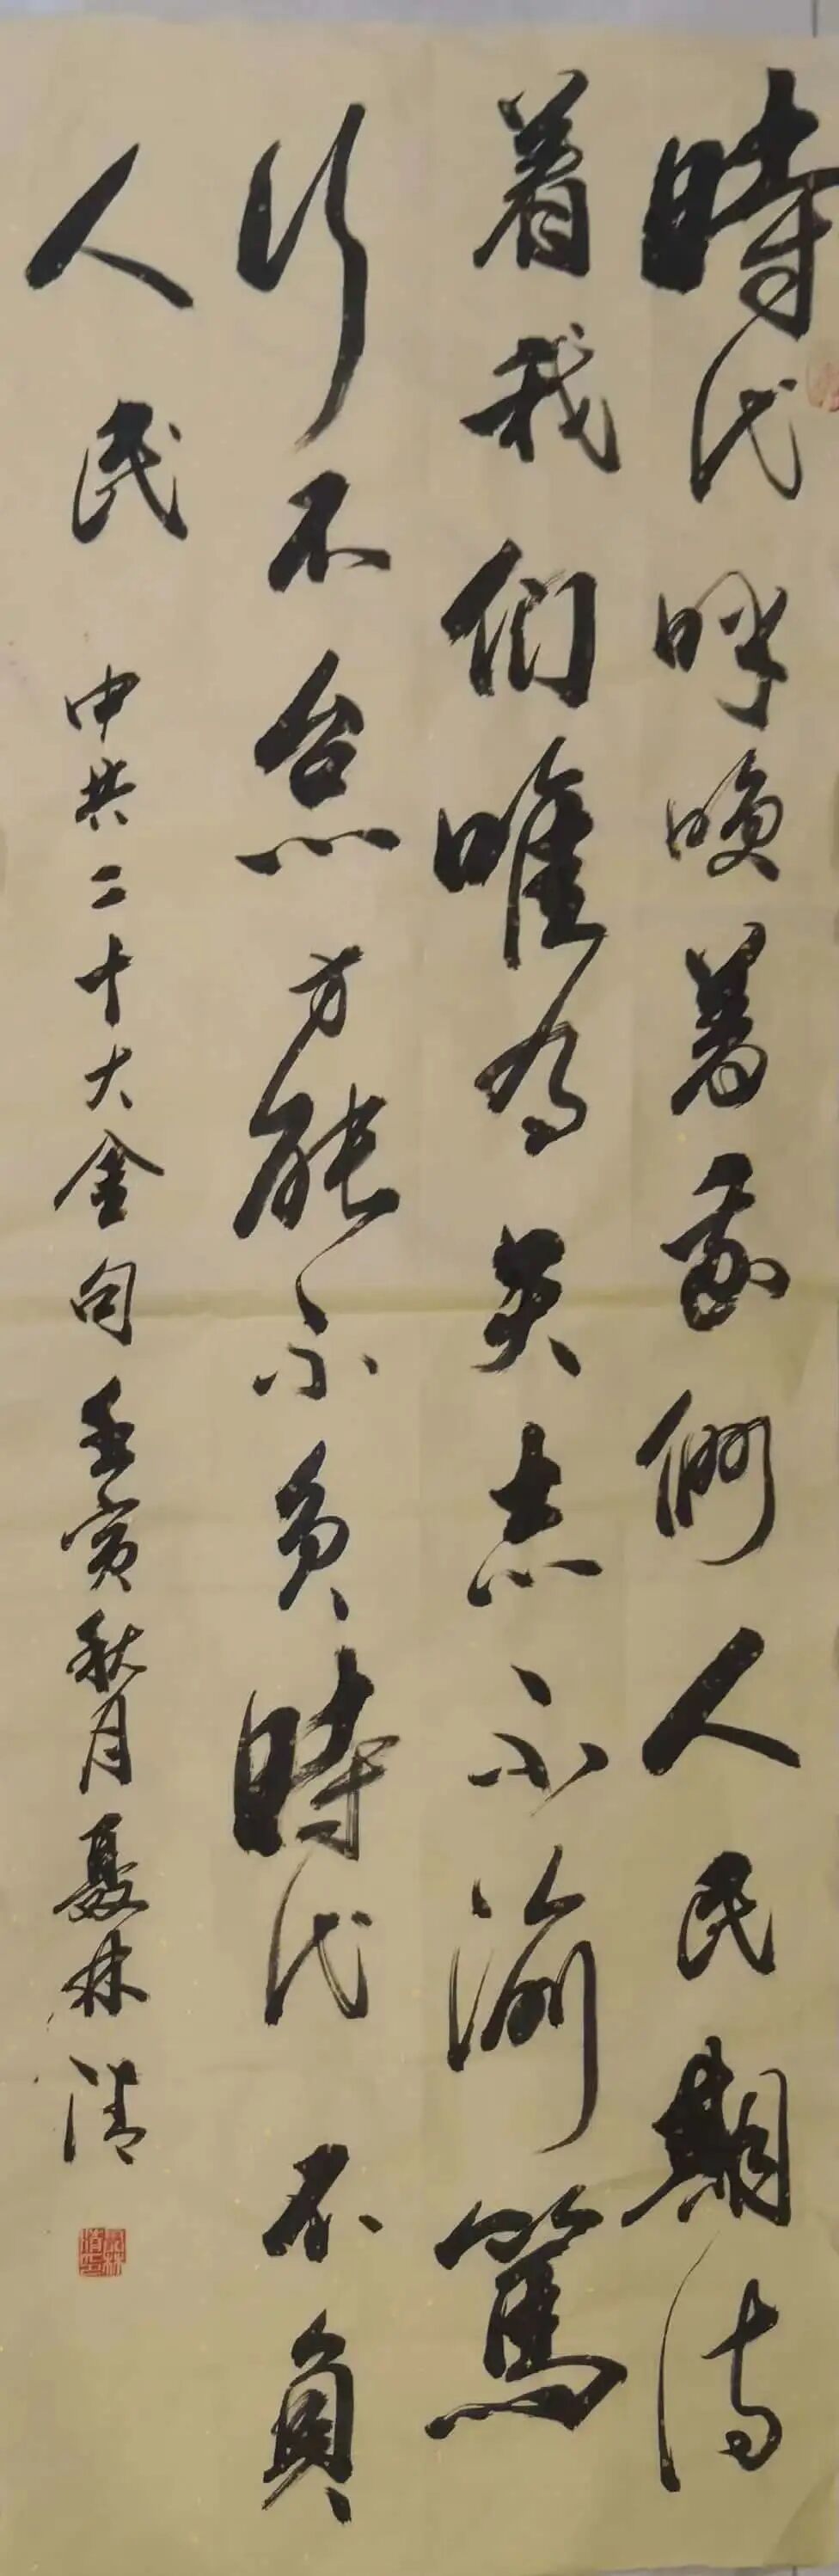 時代呼唤着我們人民期待
着我们唯有矢志不渝篤
行不怠方能不負時代不負
人民 中共二十大金句壬寅秋月聂林清